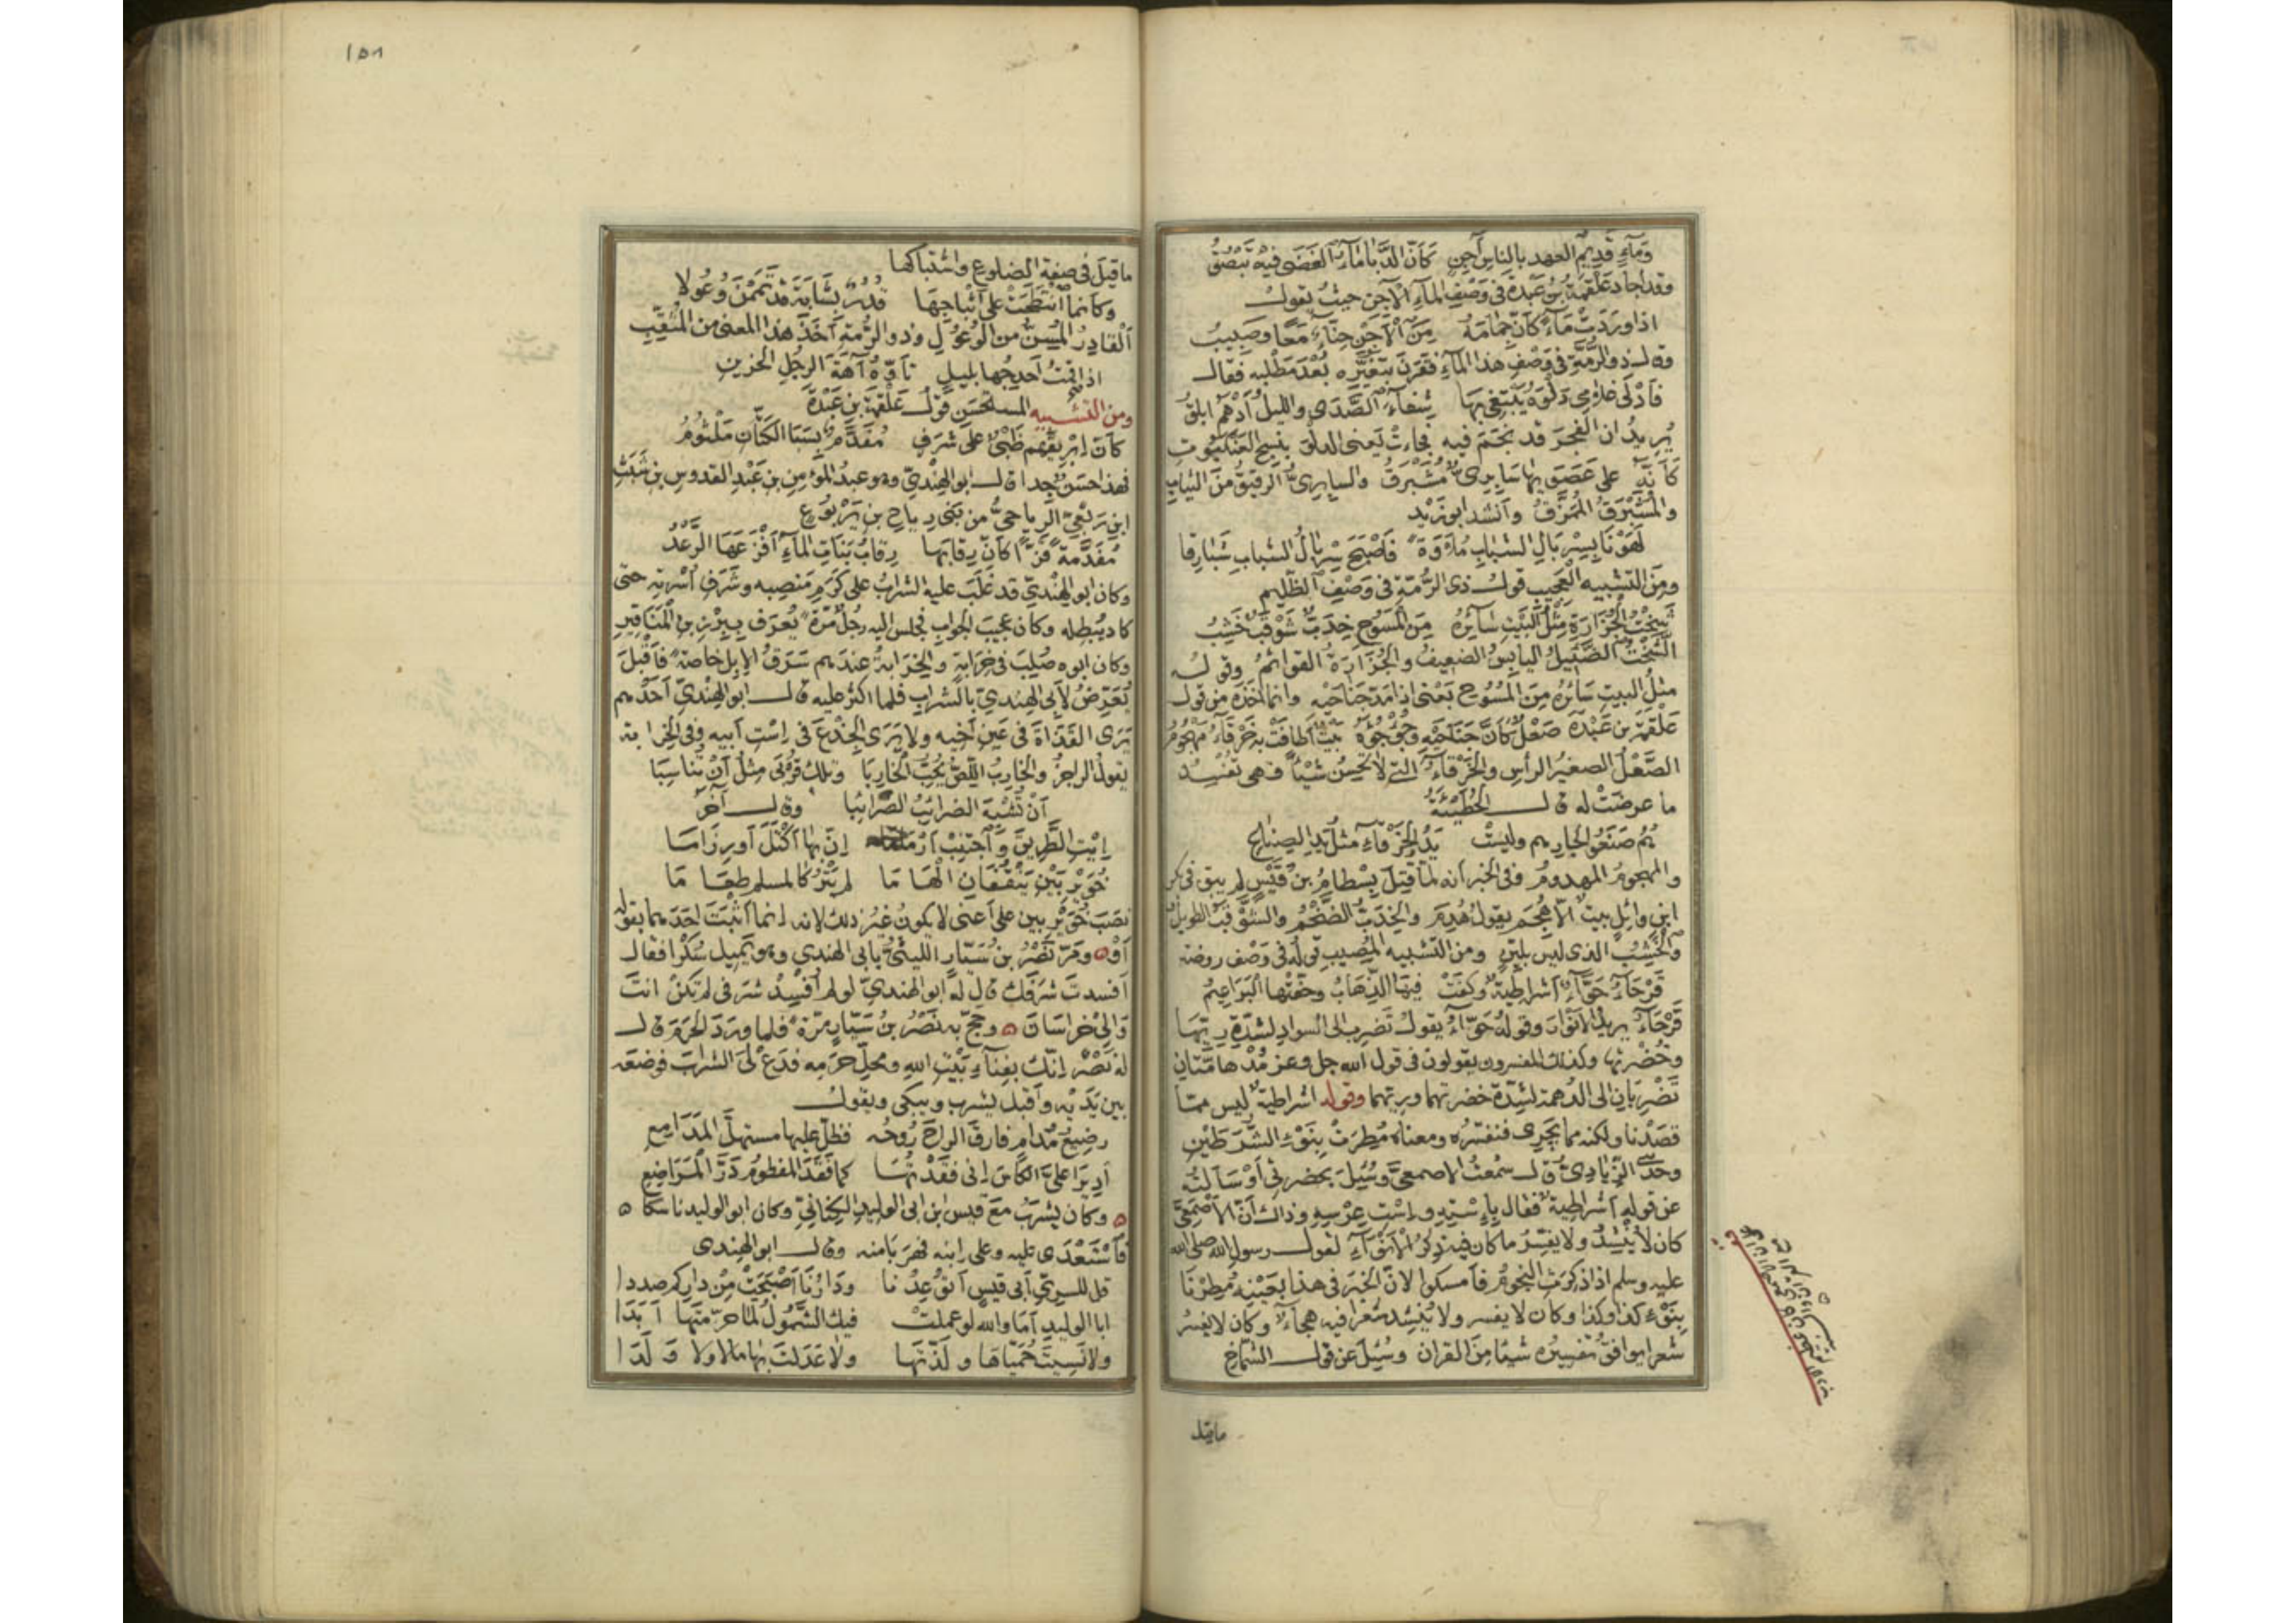 وَمَآءٍ قَديمِ العهد بالناسِ آجِنٍ كَأَنّ الدَّبَا مَاءَ الغَضَى فيه تَبْصُقُ
وقد اجاد عَلْقَمةُ بنُ عَبَدةَ فى وَصْفِ المآءِ الآجِن حيثُ يقولُ
اذا وَرَدَتْ مَآءً كَأنّ جِمَامَهُ مِنَ الأَجْنِ حِنّآءٌ مَعًا وصَبِيبُ
وقال ذو الرُّمّةِ فى وَصْفِ هذا المآءِ فقَرَنَ بتغيُّرِه بُعْدَ مَطْلَبِه فقال
فأَدْلَى غلامى دَلْوَه يَبْتَغِى بها شِفَآءَ الصَّدَى والليلُ أَدْهَمُ ابلقُ
يُريدُ ان الفجرَ قد نجَمَ فيه فجاءتْ يعنى الدلْوَ بنسج العنكبوتِ
كأنّه على عَصَوَيها سَابِرِىٌّ مُشَبْرَقُ والسابِرِىُّ الرقيقُ منَ الثيابِ
والمُشَبْرَقُ المُمَزَّقُ وأنشد ابو زَيْد
لَهَوْنَا بِسِرْبَالِ الشبابِ مُلَاوَةً فأصْبَحَ سِرْبَالُ الشبابِ شَبَارِقا
ومنَ التشبيهِ العجيبِ قولُ ذى الرُّمّةِ فى وَصْفِ الظليمِ
شَخْتُ الجُزَارَةِ مثْلُ البَيْتِ سَآئِرُهُ مِنَ المُسُوحِ خِدَبٌّ شَوْقَبٌ خَشِبُ
الشَّخْتُ الضَّئيلُ اليابسُ الضعيفُ والجُزَارَةُ القوائمُ وقوله
مثْلُ البيتِ سَائِرُهُ مِنَ المُسُوحِ يَعْنى اذا مَدَّ جناحَيْهِ وانما أخَذَهُ من قول
عَلْقمةَ بن عَبَدةَ صَعْلٌ كَأنَّ جَنَاحَيْهِ وجُؤْجُؤَهُ بَيْتٌ أطَافَتْ به خَرْقَآءُ مَهْجُومُ
الصَّعْلُ الصغيرُ الرأسِ والخَرْقآءُ التى لا تُحْسِنُ شيئًا فهى تُفْسِد
ما عرضَتْ له قال الحُطَيْئَةُ
هُمُ صَنَعُوا لجارِهم وليستْ يَدُ الخَرْقآءِ مثلَ يدِ الصَّنَاعِ
والمهجومُ المهدومُ وفى الخبر أنه لمّا قُتِلَ بِسْطَامُ بنُ قَيْسٍ لم يبق فى بكر
ابنِ وائلٍ بيتٌ الّا هُجِمَ يقولُ هُدِمَ والخِدَبُّ الضَّخْمُ والشَّوْقَبُ الطويلُ
والخَشِبُ الذى ليس بليّنٍ ومن التشبيه المُصِيبِ قولُه فى وَصْف روضة
قَرْحَآءُ حَوّآءُ أشراطيّةٌ وَكَفَتْ فيها الذِّهَابُ وحَفّتْها البَرَاعِيمُ
قَرْحَآءُ يريدُ الأنْوَارَ وقولُه حَوّآءُ يقولُ تَضْرِبُ الى السوادِ لشدّةِ رِيِّهَا
وخُضْرَتها وكذلك المفسرون يقولون فى قول الله جل وعز مُدْهامَّتَان
تَضْرِبَانِ الى الدُهمة لشدّة خضرتهما ورِيّهما وقوله اشراطيةٌ ليس ممّا
قصَدْنا ولكنه مما يَجْرِى فنفسّرُه ومعناه مُطِرَتْ بِنَوْءِ الشَّرَطَيْنِ
وحَدّثنى الزِّيَادِىُّ قال سمعتُ الاصمعىَّ وسُئِلَ بحضرتى أوْ سَألتُه
عن قوله أشراطيةٌ فقال بإسْتِهِ واسْتِ عِرْسِهِ وذاك أنّ الأصْمَعىَّ
كان لا يُنْشِدُ ولا يفسّرُ ما كان فيه ذِكْرُ الأنْوَآءِ لقول رسولِ الله صلى الله
عليه وسلم اذا ذُكِرَتِ النجومُ فأمسكوا لانّ الخبرَ فى هذا بعَيْنِه مُطِرْنَا
بِنَوْءِ كذا وكذا وكان لا يفسر ولا يُنْشِد شعرا فيه هجآءٌ وكان لا يفسرُ
شعرا يوافقُ تفسيرُه شيئا منَ القران وسُئِلَ عن قول الشمّاخ
ماقيل
١٥٨
ما قيلَ فى صفةِ الضلوعِ واشتباكها
وكأنما انْتَطَحَتْ على أثْبَاجِهَا فُدُرٌ بِشَابَةَ قد تَمَمْنَ وُعُولا
ألْفَادِرُ المُسِنُّ من الوُعُولِ وذو الرُّمّةِ أخَذَ هذا المعنى من المُثَقِّبِ
اذا قمتُ أحدِجُها بليلٍ تأوّهُ آهَةَ الرجُلِ الحزينِ
ومن التشبيه المستحسَنِ قولُ عَلْقمةَ بن عَبَدةَ
كأنّ إبْريقَهم ظَبْىٌ على شَرَفٍ مُفَدَّمٌ بِسَبَا الكَتّانِ مَلْثُومُ
فهذا حسَنٌ جدا قال ابو الهِنْدىِّ وهو عبدُ المؤمن بن عَبْدِ القدوس بن شَبَثِ
ابنِ رِبْعِىٍّ الرياحىُّ من بَنى رِيَاحِ بن يَرْبُوعٍ
مُفَدَّمَةً قَزًّا كأنّ رِقابَها رِقابُ بَنَاتِ المآءِ أفْزَعَها الرَّعْدُ
وكان ابو الهِنْدىِّ قد غَلَبَ عليه الشرابُ على كَرَمِ مَنصِبِه وشَرَفِ أُسْرتِه حتى
كاد يُبطِله وكان عجيبَ الجوابِ فجلس اليه رجُلٌ مَرّةً يُعرَف بِبِرْزِينٍ المَنَاقِير
وكان ابوه صُلِبَ فى خِرَابَةٍ والخِرَابةُ عندهم سَرَقُ الإبِلِ خاصّةً فأقْبَلَ
يُعَرِّضُ لأبى الهِندىِّ بالشراب فلما اكثرَ عليه قال ابو الهِنْدىِّ أحَدُهم
يَرَى القَذَاةَ فى عَين أخيه ولا يَرَى الجِذْعَ فى اسْتِ أبيه وفى الخِرابة
يقولُ الراجزُ والخاربُ اللّصُّ يُحِبُّ الخارِبَا وتلك قُرْبَى مثلُ أنْ تُناسِبَا
أنْ تُشْبِهَ الضرائبُ الضّرَائِبَا وقال آخر
إيْتِ الطّرِيقَ وَاجْتَنِبْ أرْمَاما إنّ بها أكْتَلَ أو رِزَامَا
خُوَيْرِبَيْنِ يَنْقُفَانِ الْهَامَا لم يَتْرُكا لمسلم طعَامَا
نصَبَ خُوَيْرِبين على أعنى لا يكونُ غيْرُ ذلك لانه انما أثْبَتَ احَدَهما بقوله
أوْ ومَرّ نَصْرُ بنُ سَيّارٍ الليثىُّ بابى الهندى وهو يَمِيلُ سُكْرًا فقال
أفسدتَ شرَفَكَ قال له ابو الهندىّ لو لم أُفْسِدْ شرَفى لم تكُنْ انتَ
وَالِىَ خراسان وحجّ به نَصْرُ بنُ سَيّارٍ مرّةً فلما ورَدَ الحَرَمَ قال
له نَصْرٌ إنّك بفِنآءِ بَيْتِ الله ومحلِّ حرَمِه فدَعْ لىَ الشرابَ فوضعَه
بين يَدَيْه وأقبلَ يشرب ويبكى ويقولُ
رضِيعُ مُدَامٍ فارَقَ الراحَ رُوحُه فظلّ عليها مستهِلَّ المَدَامِعِ
أدِيرَا علىَّ الكأسَ انى فقَدْتُهَا كما فَقَدَ المفطومُ دَرَّ المَرَاضِعِ
وكان يشرَبُ مَعَ قيسِ بن ابى الوليدِ الكِنانىّ وكان ابو الوليد ناسكا
فأسْتَعْدَى عليه وعلى ابنه فهَرَبَا منه وقال ابو الهندى
قل للسرىّ أبى قيسٍ أتُوعِدُنا ودَارُنَا أصْبَحَتْ مِنْ دارِكم صددا
ابا الوليدِ أمَا والله لو عملتْ فيك الشَّمُولُ لَمَا حرّمتَها أبَدَا
ولا نَسِيتَ حُمَيّاهَا ولَذّتَهَا ولا عَدَلتَ بها مالا ولا وَلَدَا